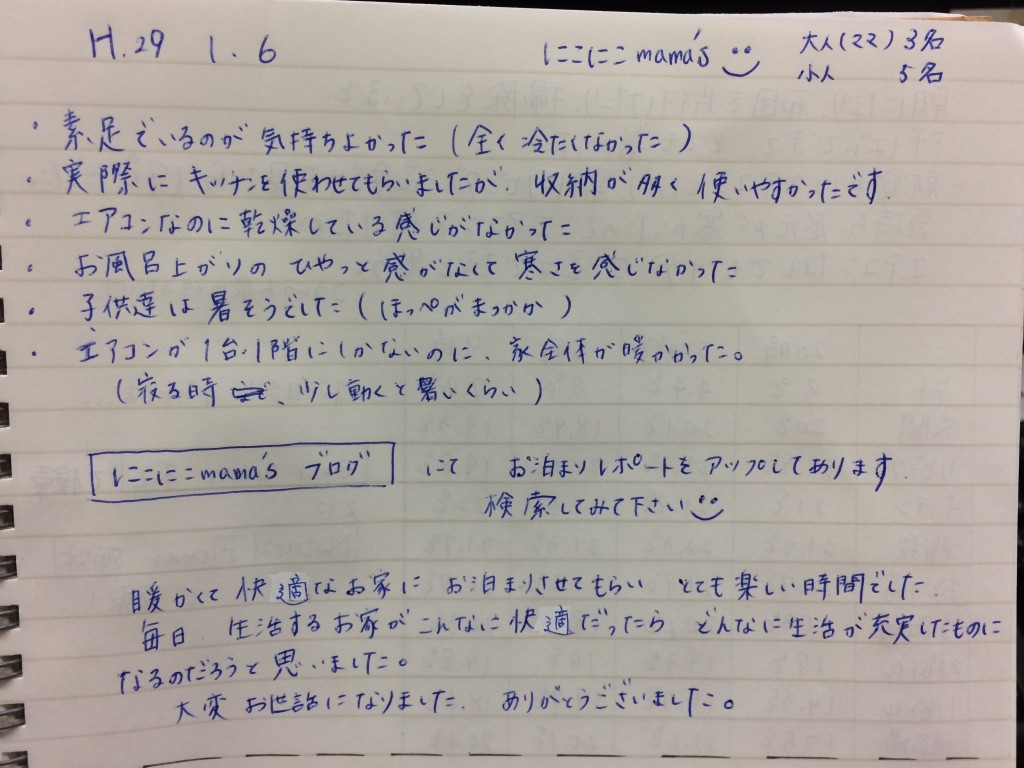 H.29 1.6 にこにこmama's 大人(ママ)3名
小人 5名
・素足でいるのが気持ちよかった(全く冷たくなかった)
・実際にキッチンを使わせてもらいましたが、収納が多く使いやすかったです.
・エアコンなのに乾燥している感じがなかった
・お風呂上がりの ひやっと感がなくて寒さを感じなかった
・子供達は暑そうでした(ほっぺがまっかか)
・エアコンが1台.1階にしかないのに、家全体が暖かかった。
(寝る時 、少し動くと暑いくらい)
にこにこmama's ブログ にて お泊まりレポートをアップしてあります.
検索してみて下さい
暖かくて快適なお家に お泊まりさせてもらい とても楽しい時間でした.
毎日.生活するお家がこんなに快適だったら どんなに生活が充実したものに
なるのだろうと思いました。
大変お世話になりました. ありがとうございました。